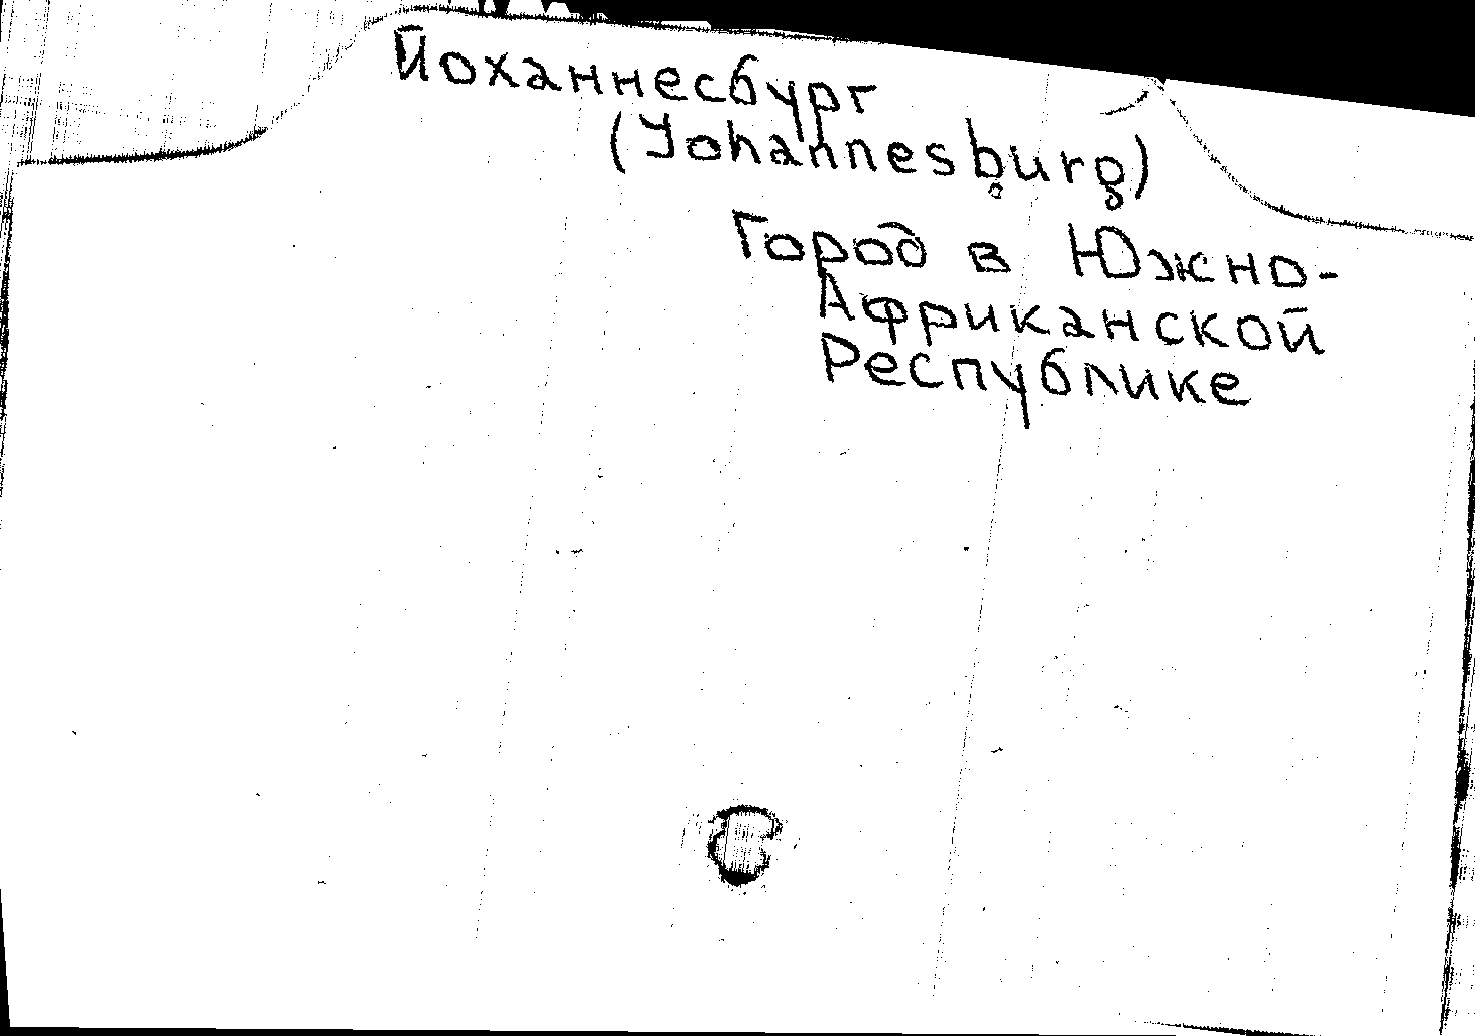 Йоханнесбург
(Johannesburg)
Город в Южно-
Африканской
Республике